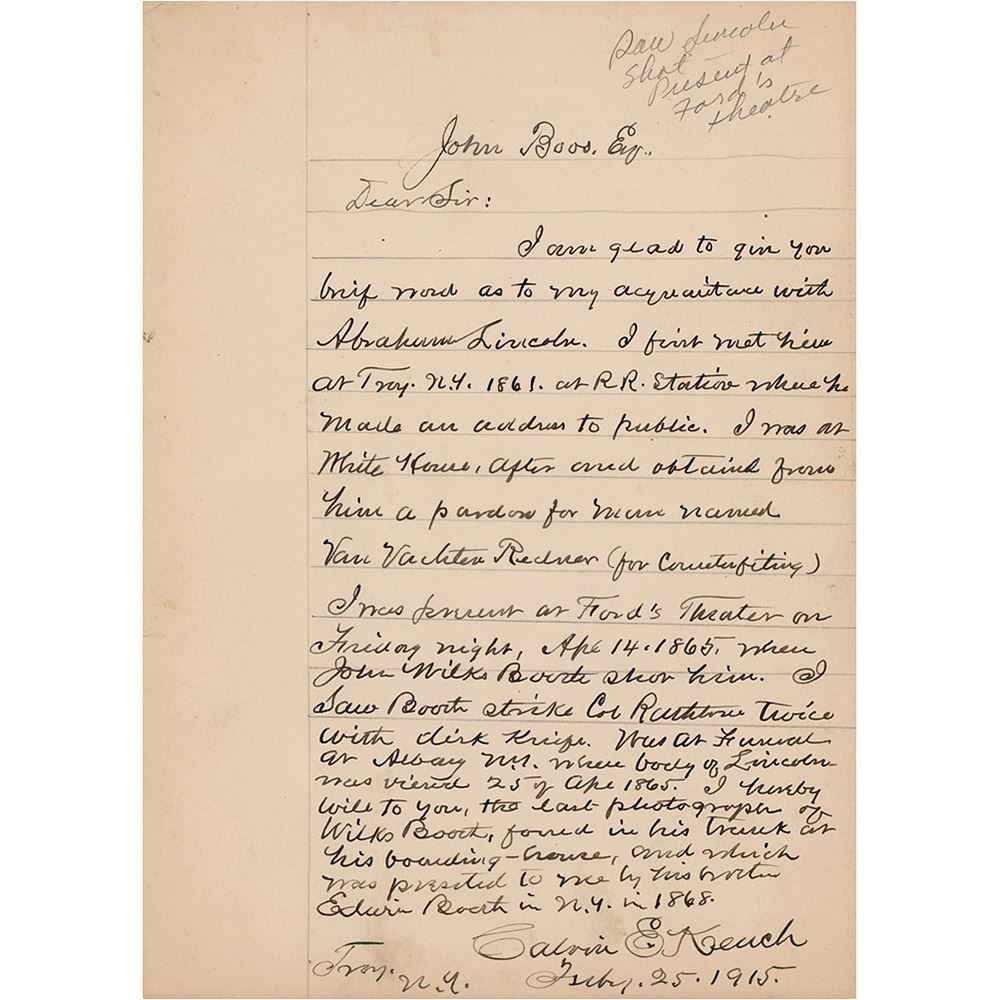 Saw Lincoln
Shot
Present at
Ford's
theatre
John Boos. Esq.
Dear Sir:
I am glad to give you
brief word as to my acquaintance with
Abraham Lincoln. I first met him
at Troy. N.Y. 1861. at R.R. Station where he
made an address to public. I was at
White House, after and obtained from
him a pardon for man named
Van Vachten Redner (for Counterfiting)
I was present at Ford's Theater on
Friday night, Apl 14. 1865. when
John Wilks Booth shot him. I
Saw Booth strike Col Rathbone twice
with dirk knife. Was at Funeral
at Albany N.Y. where body of Lincoln
was viewed 25 of Apl 1865. I hereby
will to you, the last photograph of
Wilks Booth, found in his trunk at
his boarding-house, and which
was presented to me by his brother
Edwin Booth in N.Y. in 1868.
Calvin E. Keach
Troy. N.Y. Feby. 25. 1915.